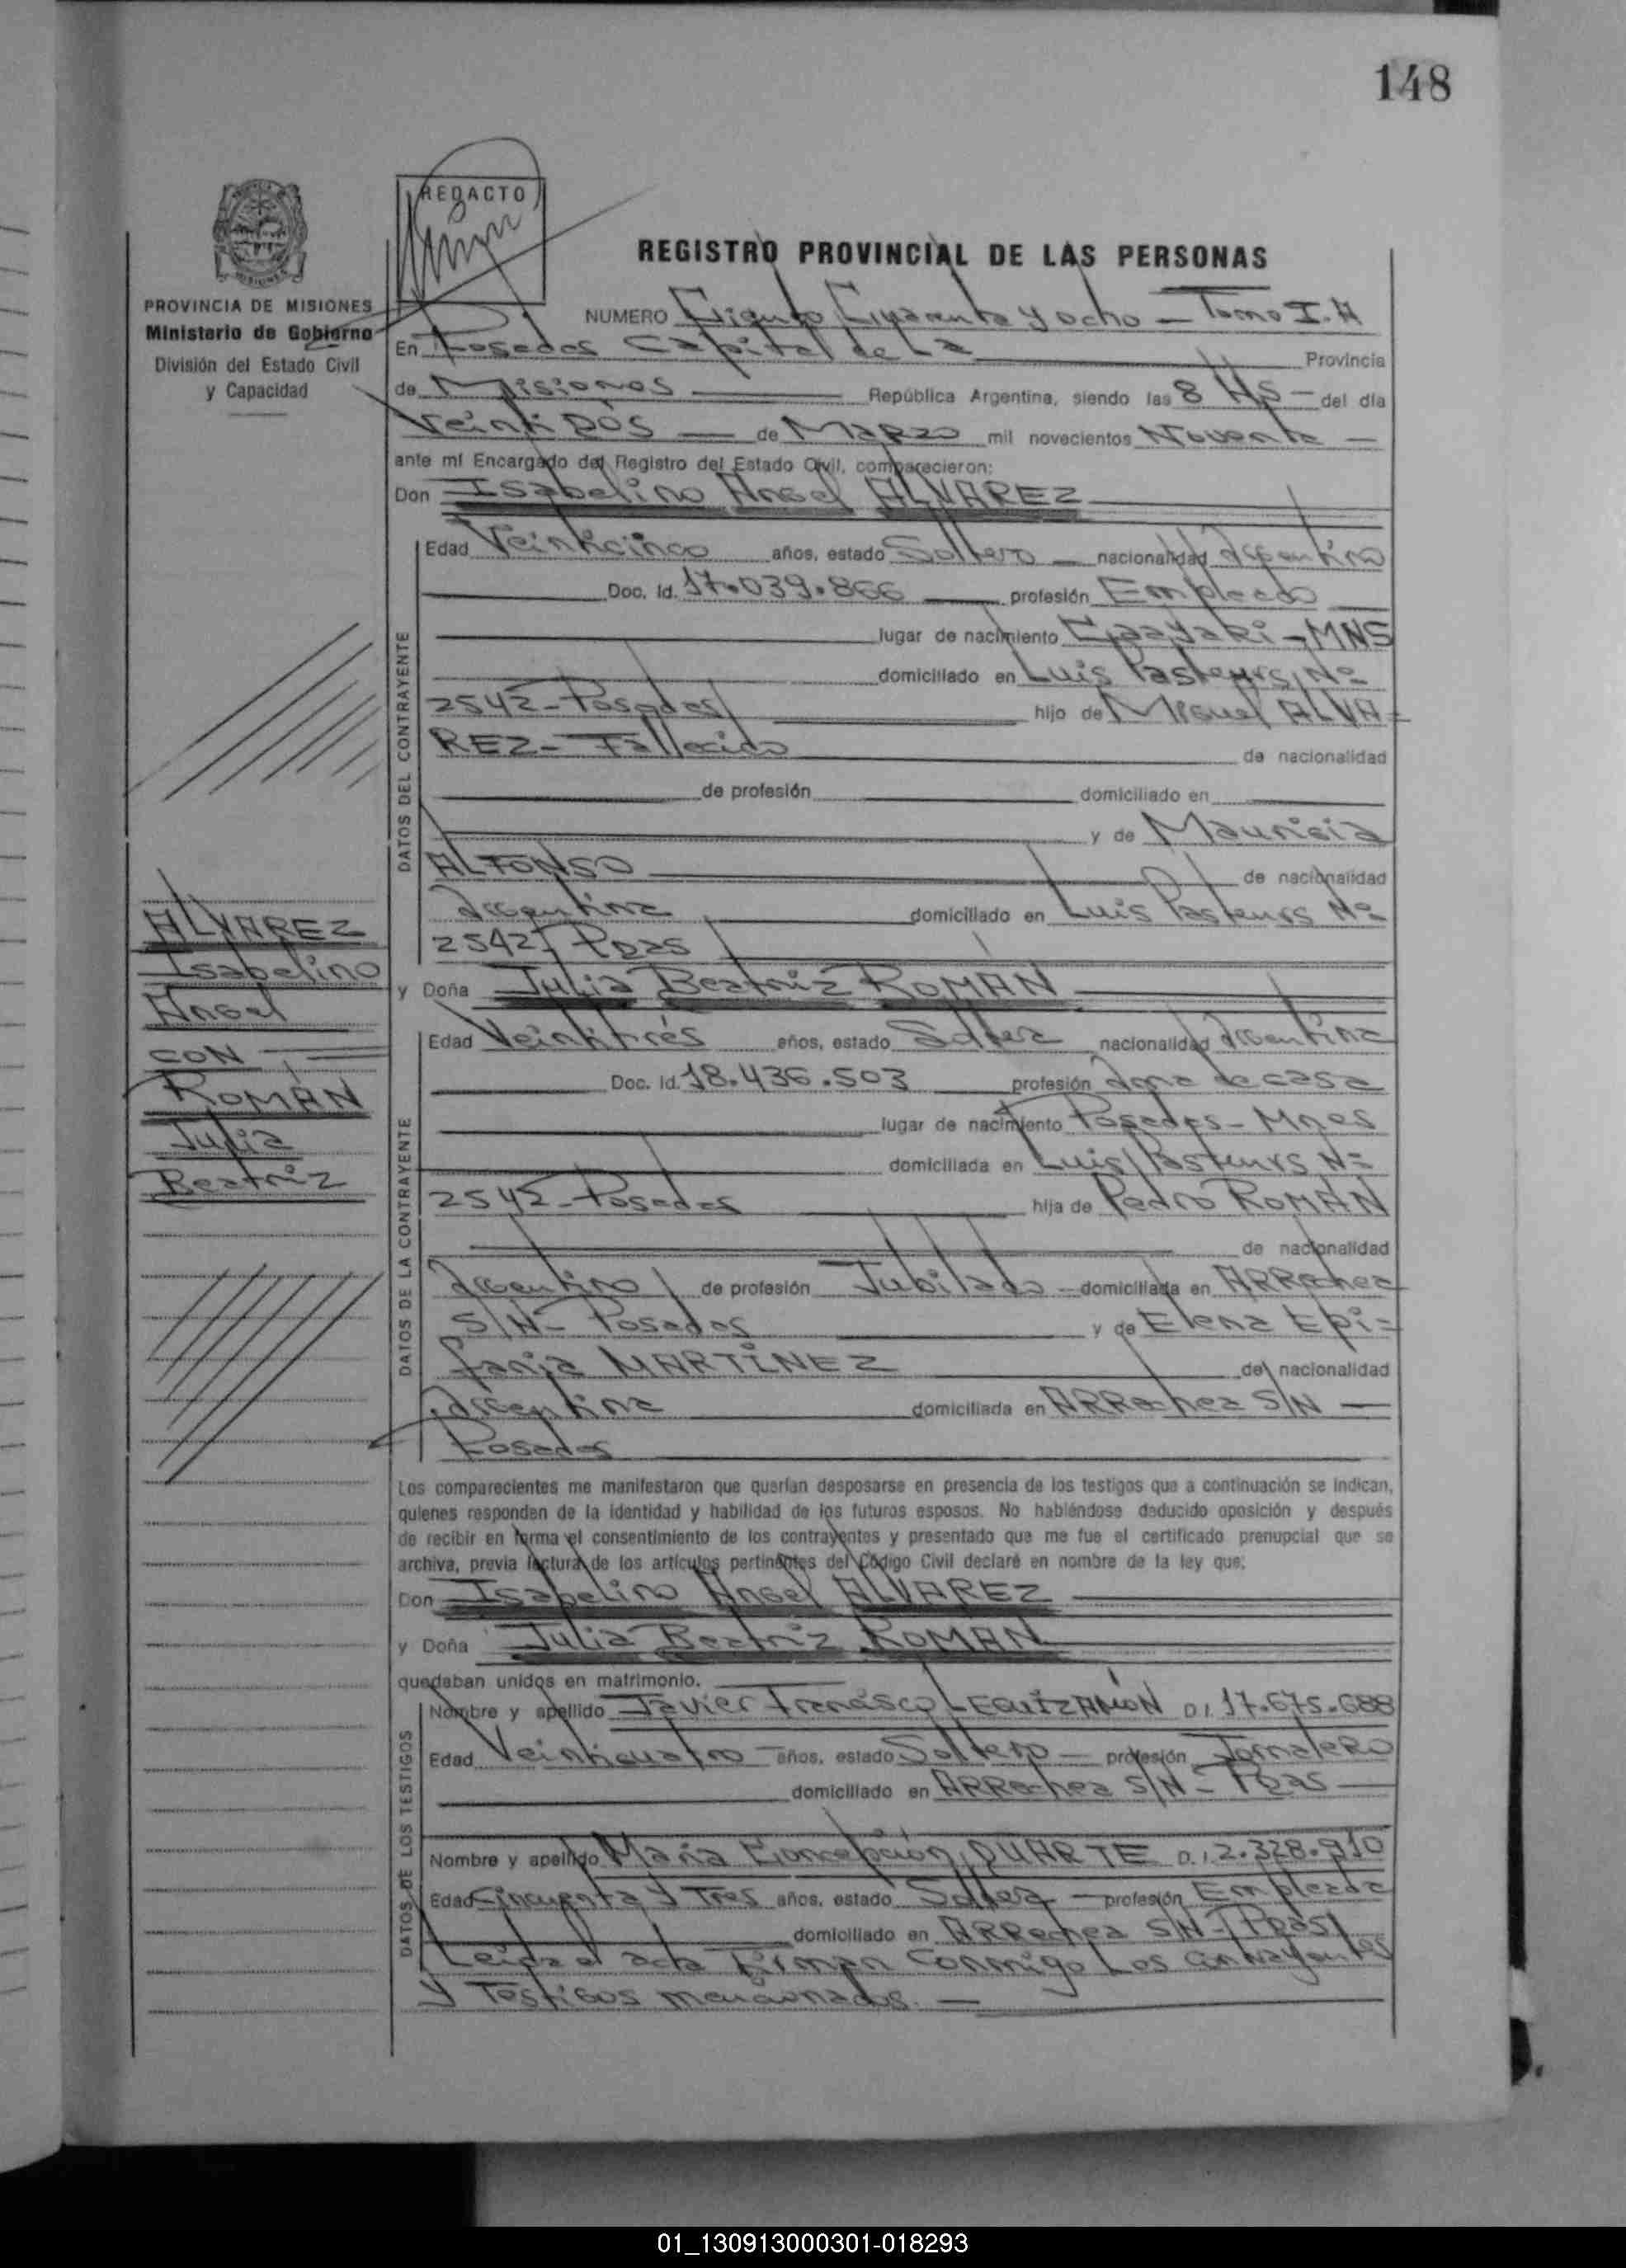 148
REDACTO
REGISTRO PROVINCIAL DE LAS PERSONAS
PROVINCIA DE MISIONES
Ministerio de Gobierno
División del Estado Civil
y Capacidad
NUMERO Ciento Cuarenta y ocho — Tomo I. A
En Posadas Capital de La Provincia
de Misiones República Argentina, siendo las 8 Hs — del día
Veinti DOS — de Marzo mil novecientos Noventa —
ante mí Encargado del Registro del Estado Civil, comparecieron:
Don Isabelino Angel ALVAREZ
DATOS DEL CONTRAYENTE
Edad Veinticinco años, estado Soltero — nacionalidad Argentino
Doc. Id. 17.039.866 profesión Empleado
lugar de nacimiento - MNS
domiciliado en Luis Pasteurs Nº
2542 - Posadas hijo de Miguel ALVA=
REZ - Fallecido de nacionalidad
de profesión domiciliado en
y de Maurisia
ALFONSO de nacionalidad
Argentina domiciliado en Luis Pasteurs Nº
2542 - Pdas
ALVAREZ
Isabelino
Angel
CON
ROMÁN
Julia
Beatriz
y Doña Julia Beatriz ROMÁN
DATOS DE LA CONTRAYENTE
Edad Veintitrés años, estado Soltera nacionalidad Argentina
Doc. Id. 18.436.503 profesión Ama de casa
lugar de nacimiento Posadas - Mnes
domiciliada en Luis Pasteurs Nº
2542 - Posadas hija de Pedro ROMÁN
de nacionalidad
Argentino de profesión Jubilado - domiciliada en ARRechea
S/N - Posadas y de Elena Epi=
fania MARTÍNEZ de nacionalidad
Argentina domiciliada en ARRechea S/N —
Posadas
Los comparecientes me manifestaron que querían desposarse en presencia de los testigos que a continuación se indican,
quienes responden de la identidad y habilidad de los futuros esposos. No habiéndose deducido oposición y después
de recibir en forma el consentimiento de los contrayentes y presentado que me fue el certificado prenupcial que se
archiva, previa lectura de los artículos pertinentes del Código Civil declaré en nombre de la ley que:
Don Isabelino Angel ALVAREZ
y Doña Julia Beatriz ROMAN
quedaban unidos en matrimonio.
DATOS DE LOS TESTIGOS
Nombre y apellido Javier Francisco LEGUIZAMÓN D.I. 17.675.688
Edad Veinticuatro — años, estado Soltero — profesión JornaleRo
domiciliado en ARRechea S/N - Pdas —
Nombre y apellido María Concepción DUARTE D.I. 2.328.910
Edad Cincuenta y Tres años, estado Soltera — profesión Empleada
domiciliado en ARRechea S/N - Pdas
Leida el acta Firman Conmigo Los Contrayentes
y Testigos mencionados. —
01_130913000301-018293